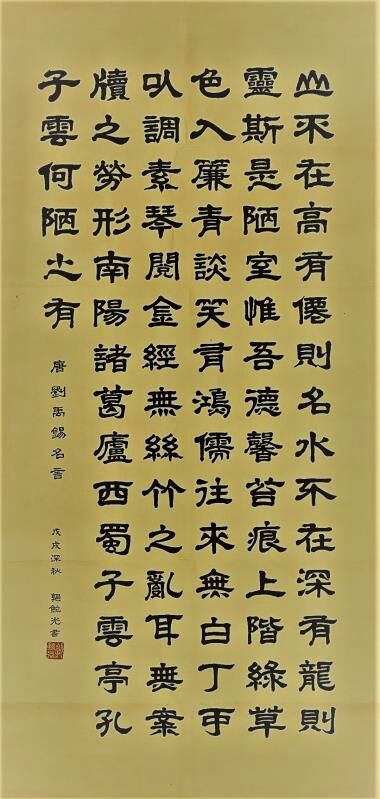 山不在高有僊則名水不在深有龍則
靈斯是陋室惟吾德馨苔痕上階綠草
色入簾青談笑有鴻儒往來無白丁可
以調素琴閱金經無絲竹之亂耳無案
牘之勞形南陽諸葛廬西蜀子雲亭孔
子雲何陋之有
唐劉禹錫名言
戊戌深秋 光書